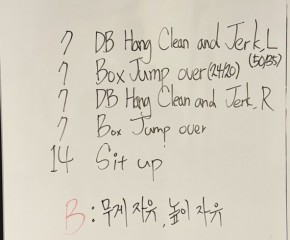 7 DB Hang Clean and Jerk, L
(50/35)
7 Box Jump over (24/20)
7 DB Hang Clean and Jerk, R
7 Box Jump over
14 Sit up
B : 무게 자유, 높이 자유